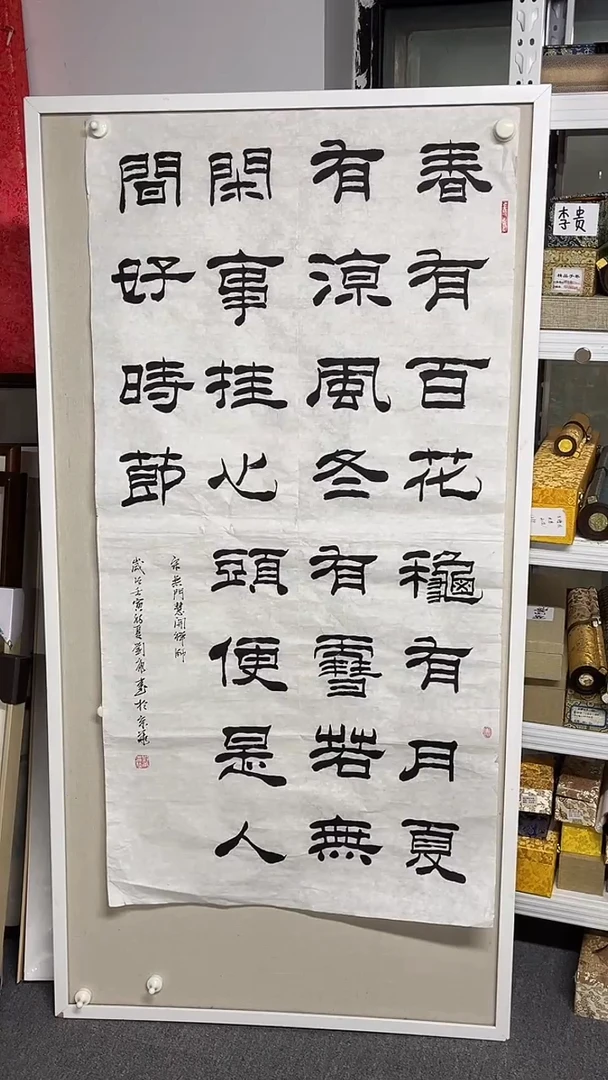 春有百花龝有月夏
有涼風冬有雪若無
閑事挂心頭便是人
間好時節
宋無門慧開禪師
歲次壬寅初夏劉康書於京華
李贵